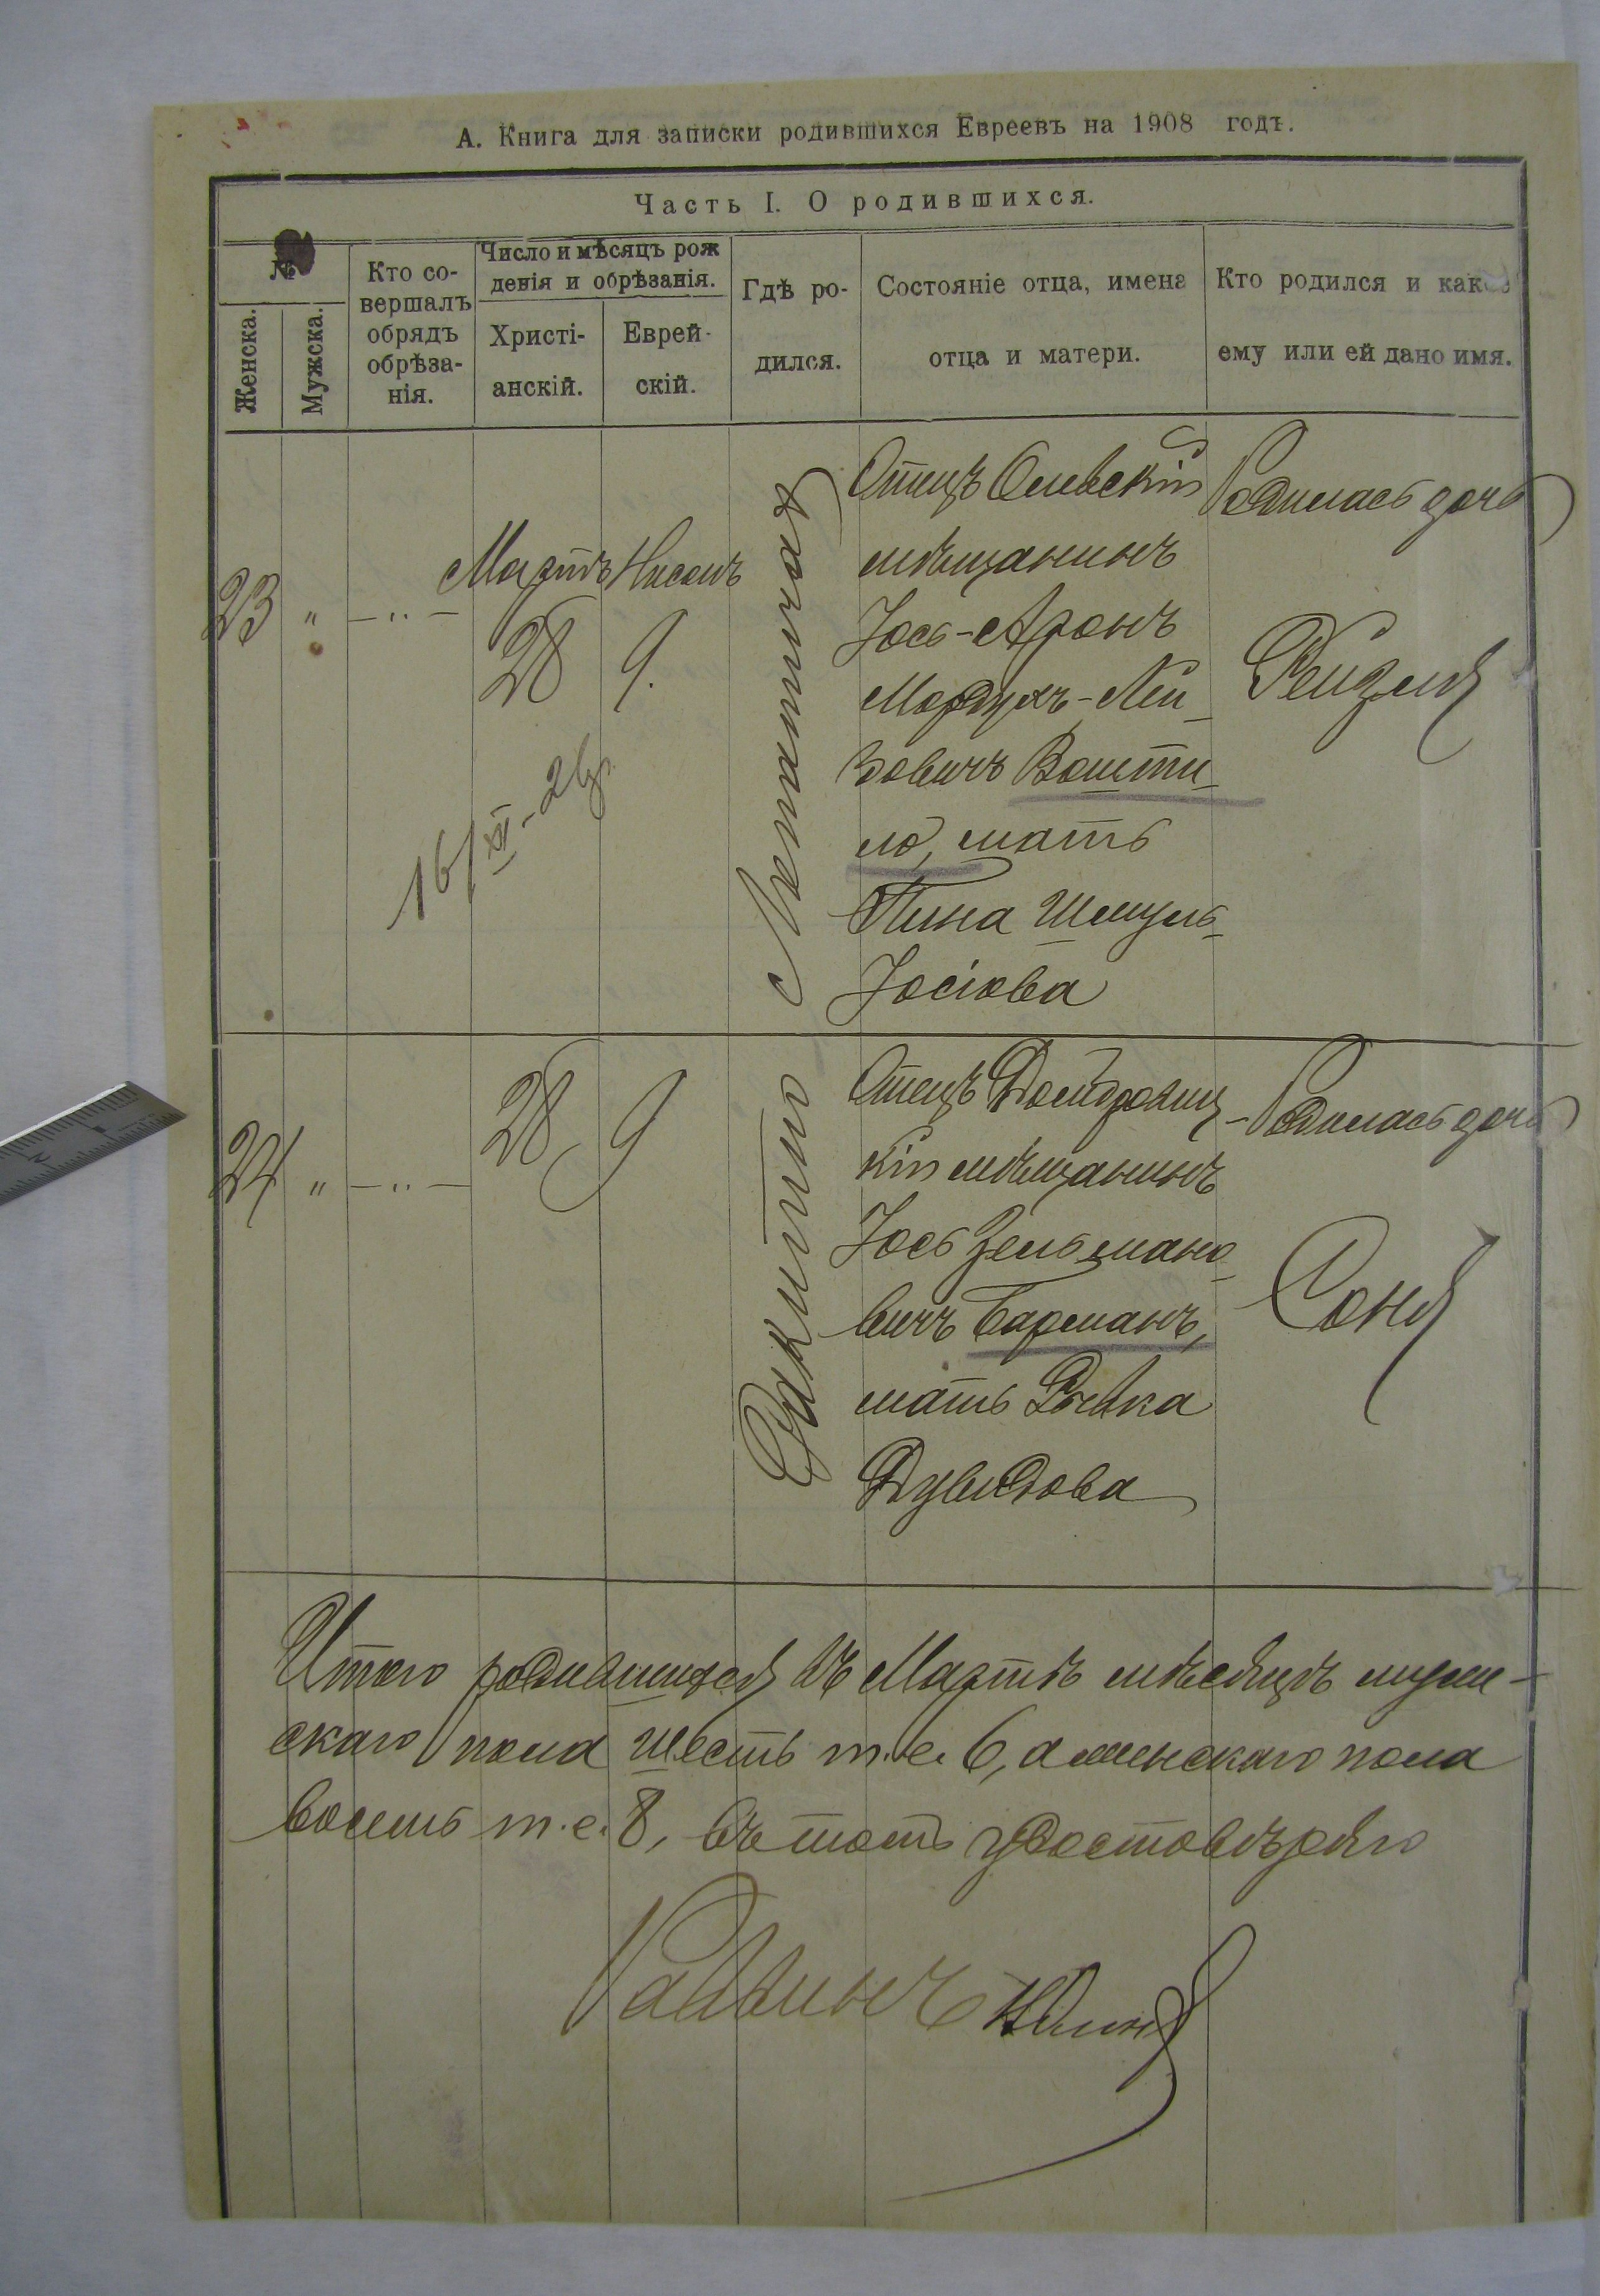 А. Книга для записки родившихся Евреевъ на 1908 годъ.
Часть I. О родившихся.
№
Женска.
Мужска.
Кто со-
вершалъ
обрядъ
обрѣза-
нія.
Число и мѣсяцъ рож
денія и обрѣзанія.
Христі-
анскій.
Еврей-
скій.
Гдѣ ро-
дился.
Состояніе отца, имена
отца и матери.
Кто родился и какое
ему или ей дано имя.
23 " — .. —
Мартъ
28
Нисанъ
9.
16/XI - 26
Отецъ Олевскій
мѣщанинъ
Іось-Аронъ
Мордухъ-Лей-
зовичъ Вошти-
ло, мать
Пина Шмуль-
Іосіова
Родилась дочь
Рейзля
24 " — .. —
28
9
Ракитно
Отецъ Домбровиц-
кій мѣщанинъ
Іось Зельмано-
вичъ Барманъ,
мать Ривка
Дувидова
Родилась дочь
Соня
Итого родившихся въ Мартѣ мѣсяцѣ муж-
скаго пола шесть т.е. 6, а женскаго пола
восемь т.е. 8, въ томъ удостовѣряю
Раввинъ